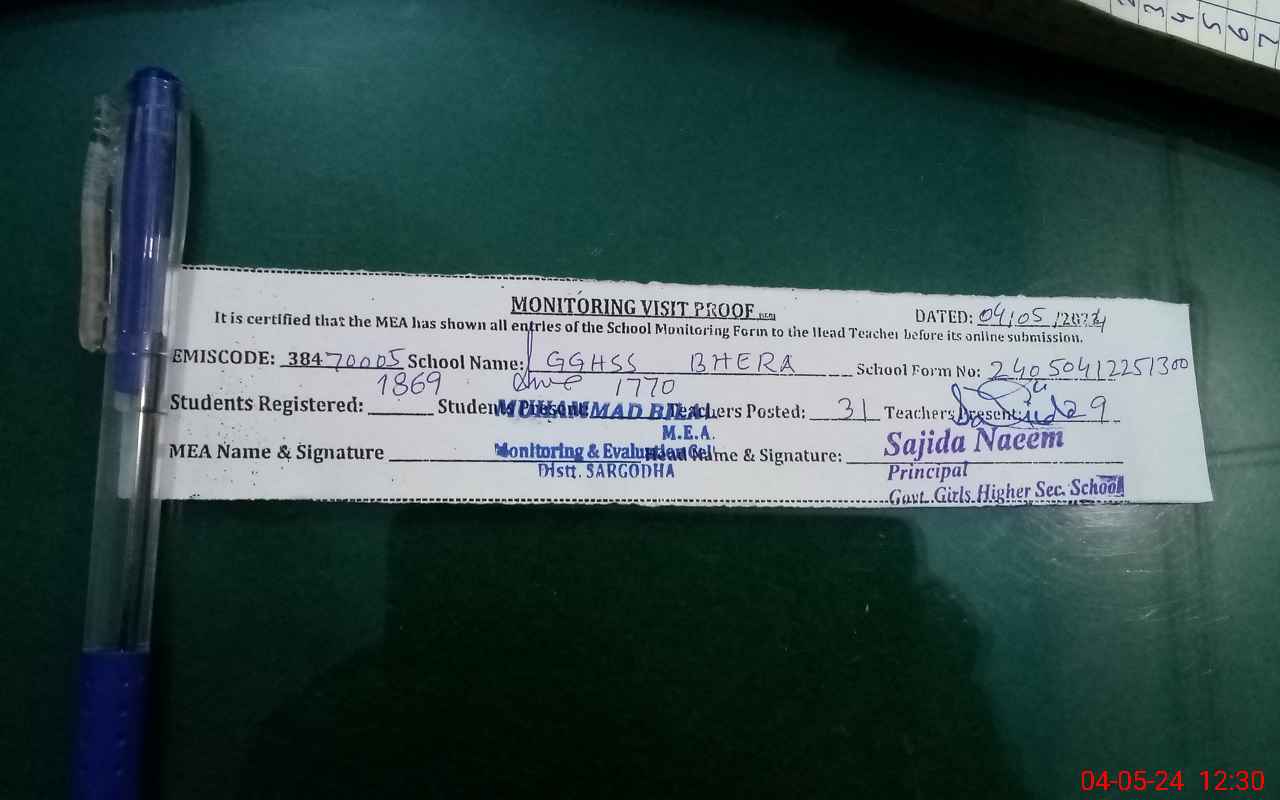 MONITORING VISIT PROOF
DATED: 04/05/2024
It is certified that the MEA has shown all entries of the School Monitoring Form to the Head Teacher before its online submission.
EMISCODE: 38470005 School Name: GGHSS BHERA School Form No: 24050412251300
1869 1770
Students Registered: Students Present: Teachers Posted: 31 Teachers Present: 29
MUHAMMAD BILAL
M.E.A.
MEA Name & Signature Head Name & Signature:
Monitoring & Evaluation Cell
Distt. SARGODHA
Sajida Naeem
Principal
Govt. Girls Higher Sec. School
2 3 4 5 6 7
04-05-24 12:30